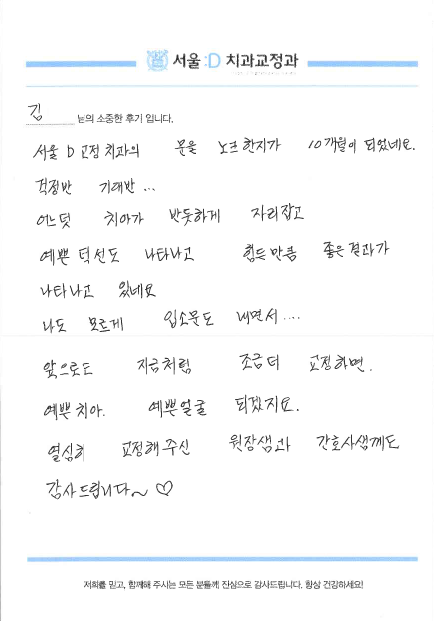 서울:D 치과교정과
김 님의 소중한 후기 입니다.
서울 D 교정 치과의 문을 노크 한지가 10개월이 되었네요.
걱정반 기대반 ...
어느덧 치아가 반듯하게 자리잡고
예쁜 턱선도 나타나고 힘든만큼 좋은결과가
나타나고 있네요
나도 모르게 입소문도 내면서 ....
앞으로도 지금처럼 조금더 교정하면.
예쁜치아. 예쁜얼굴 되겠지요.
열심히 교정해주신 원장샘과 간호사샘께도
감사드립니다~ ♡
저희를 믿고, 함께해 주시는 모든 분들께 진심으로 감사드립니다. 항상 건강하세요!